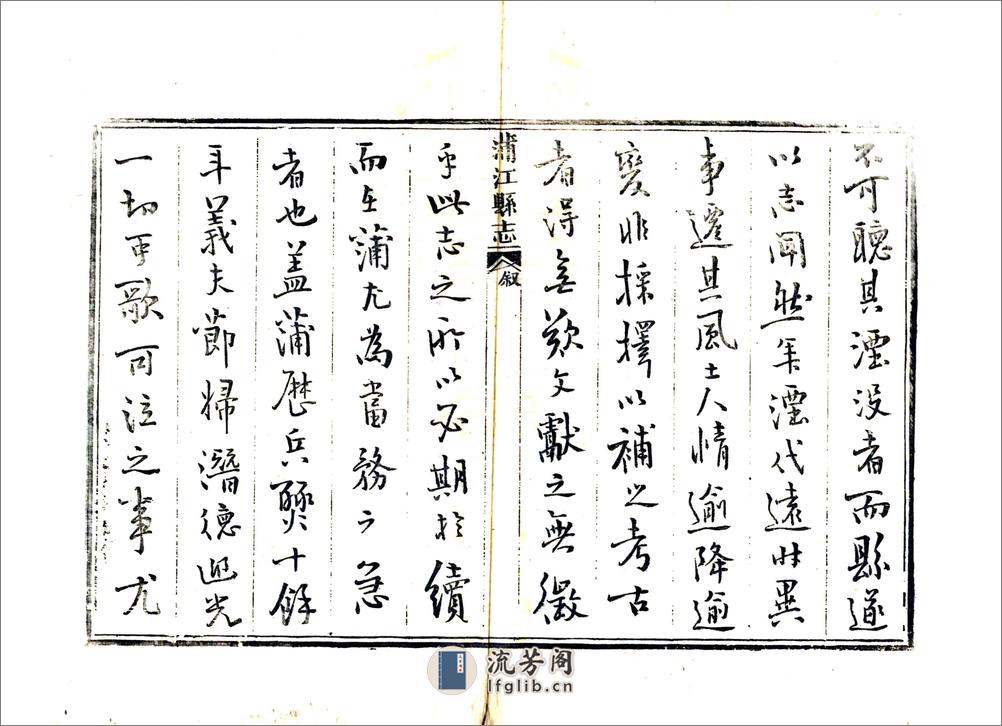 不可聽其湮没者而縣遂
以志聞然年湮代遠時異
事遷其風土人情逾降逾
變非採擇以補之考古
者得無歎文獻之無徵
蒲江縣志
叙
乎此志之所以必期於續
而在蒲尤為當務之急
者也盖蒲歷兵燹十餘
年義夫節婦潛德
光
一切可歌可泣之事尤
流芳阁
lfglib.cn